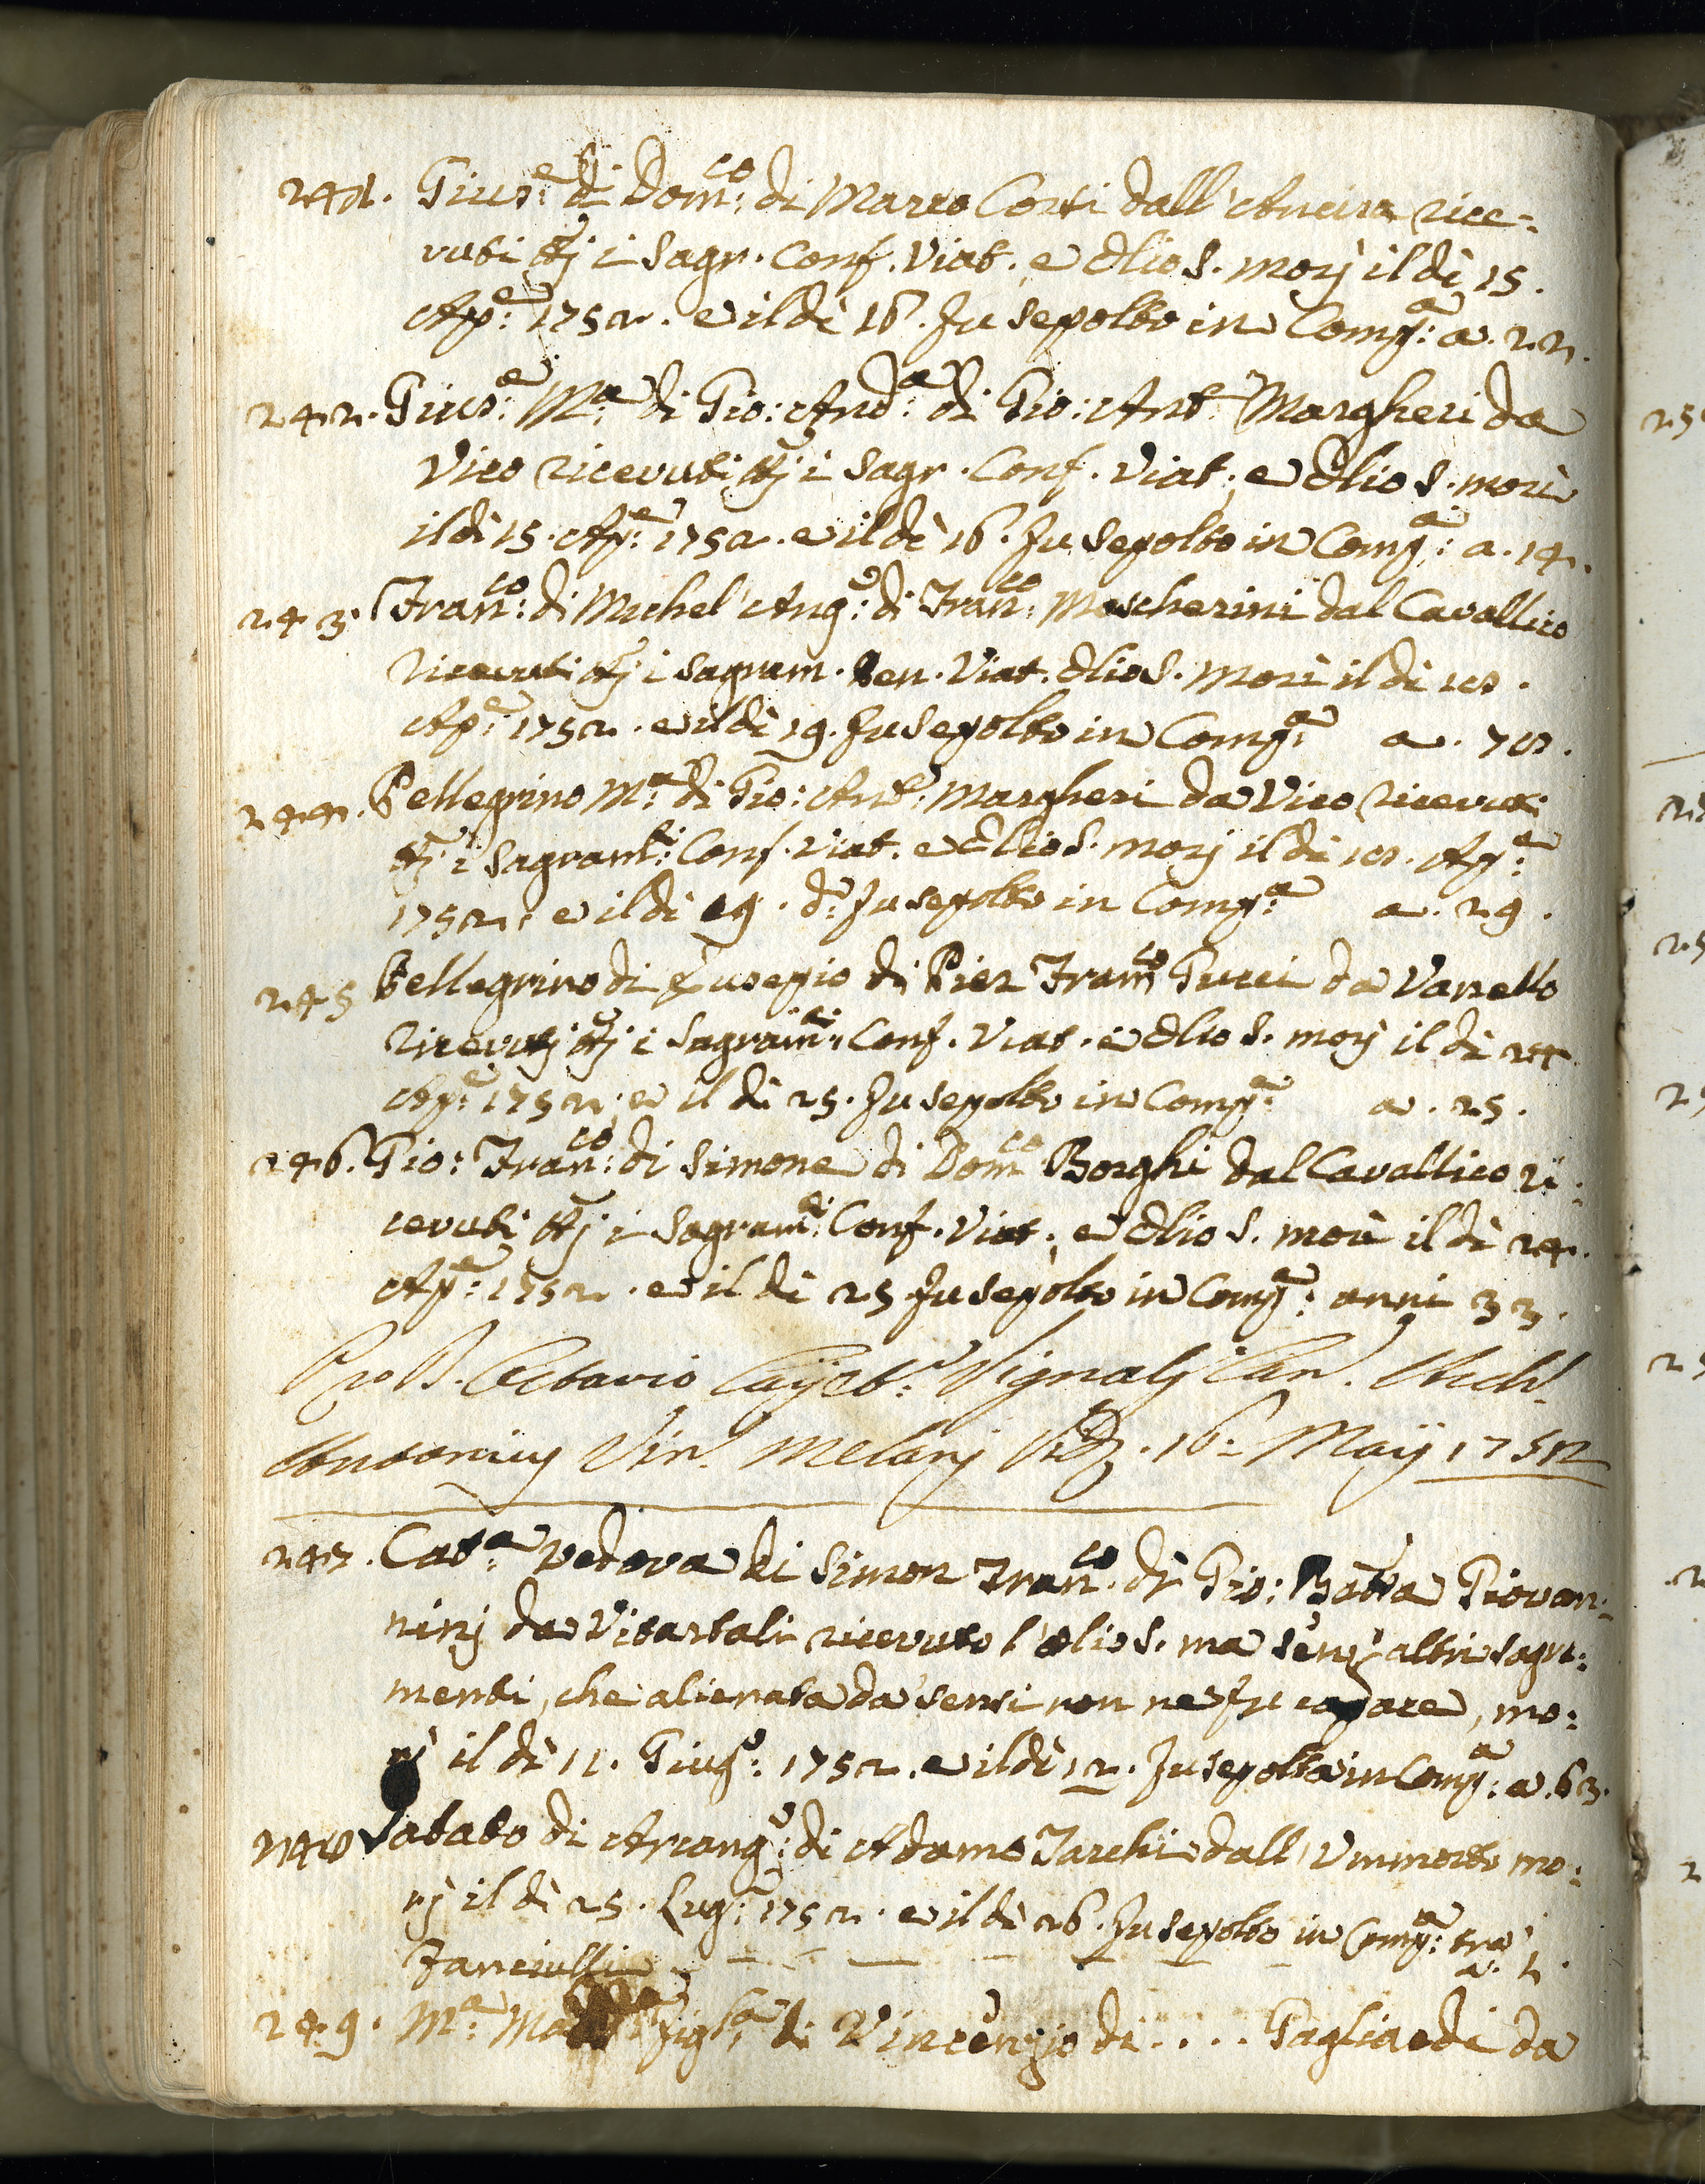 241. Gius:e di Dom:co di Marco Conti dall'Ancisa rice=
vuti ttj i Sagr. Conf. Viat. e Olio S. morj il dì 15.
Ap:e 1752. e il dì 16. fu sepolto in Comp:a a. 22.
242. Gius:e M:a di Gio: And:a di Gio: Ant: Margheri da
Vico ricevuti ttj i Sagr. Conf. Viat; e Olio S. morì
il dì 15. Ap:e 1752. e il dì 16. fu sepolto in Comp:a a. 14.
243. Fran:co di Michel'Ang:o di Fran:co Mascherini dal Cavallico
ricevuti ttj i sagram. Pen. Viat. Olio S. Morì il dì 18.
Ap:e 1752. e il dì 19. fu sepolto in Comp:a a. 78.
244. Pellegrino M:a di Gio: Ant:o Margheri da Vico ricevuti
ttj i Sagram:ti Conf. Viat. e Olio S. morj il dì 18. Ap:e
1752. e il dì 19. d:o fu sepolto in Comp:a a. 29.
245 Pellegrino di Eusepio di Pier Fran:co Pucci da Vanello
Ricevutj ttj i Sagram:ti Conf. Viat. e Olio S. morj il dì 24
Ap:e 1752; e il dì 25. fu sepolto in Comp:a a. 25.
246. Gio: Fran:co di Simone di Dom:co Borghi dal Cavallico ri=
cevuti ttj i Sagram:ti Conf. Viat; e Olio S. morì il dì 24.
Ap:e 1752. e il dì 25 fu sepolto in Comp:a anni 33.
Pro D. Octavio Cajet:o Vignalj Can. Arch.
Antonius Vin. Melanj 16: Maij 1752
247. Cat:a vedova di Simon Fran:co di Gio: Batta Giovan=
ninj da Vitartali ricevuto l'olio S. ma senz'altri sagra=
menti, che alienata da'sensi non ne fu capace, mo=
rì il dì 11. Giug:o 1752. e il dì 12. fu sepolta in Comp:a a. 63.
248 Sabato di Arcang:o di Adamo Tarchi dall'Ummorto mo=
rj il dì 25. Lug:o 1752. e il dì 26. fu sepolto in Comp:a tra i
Fanciulli a. 2.
249. M:a figl:a di Vincenzio di .... Gagliardi da